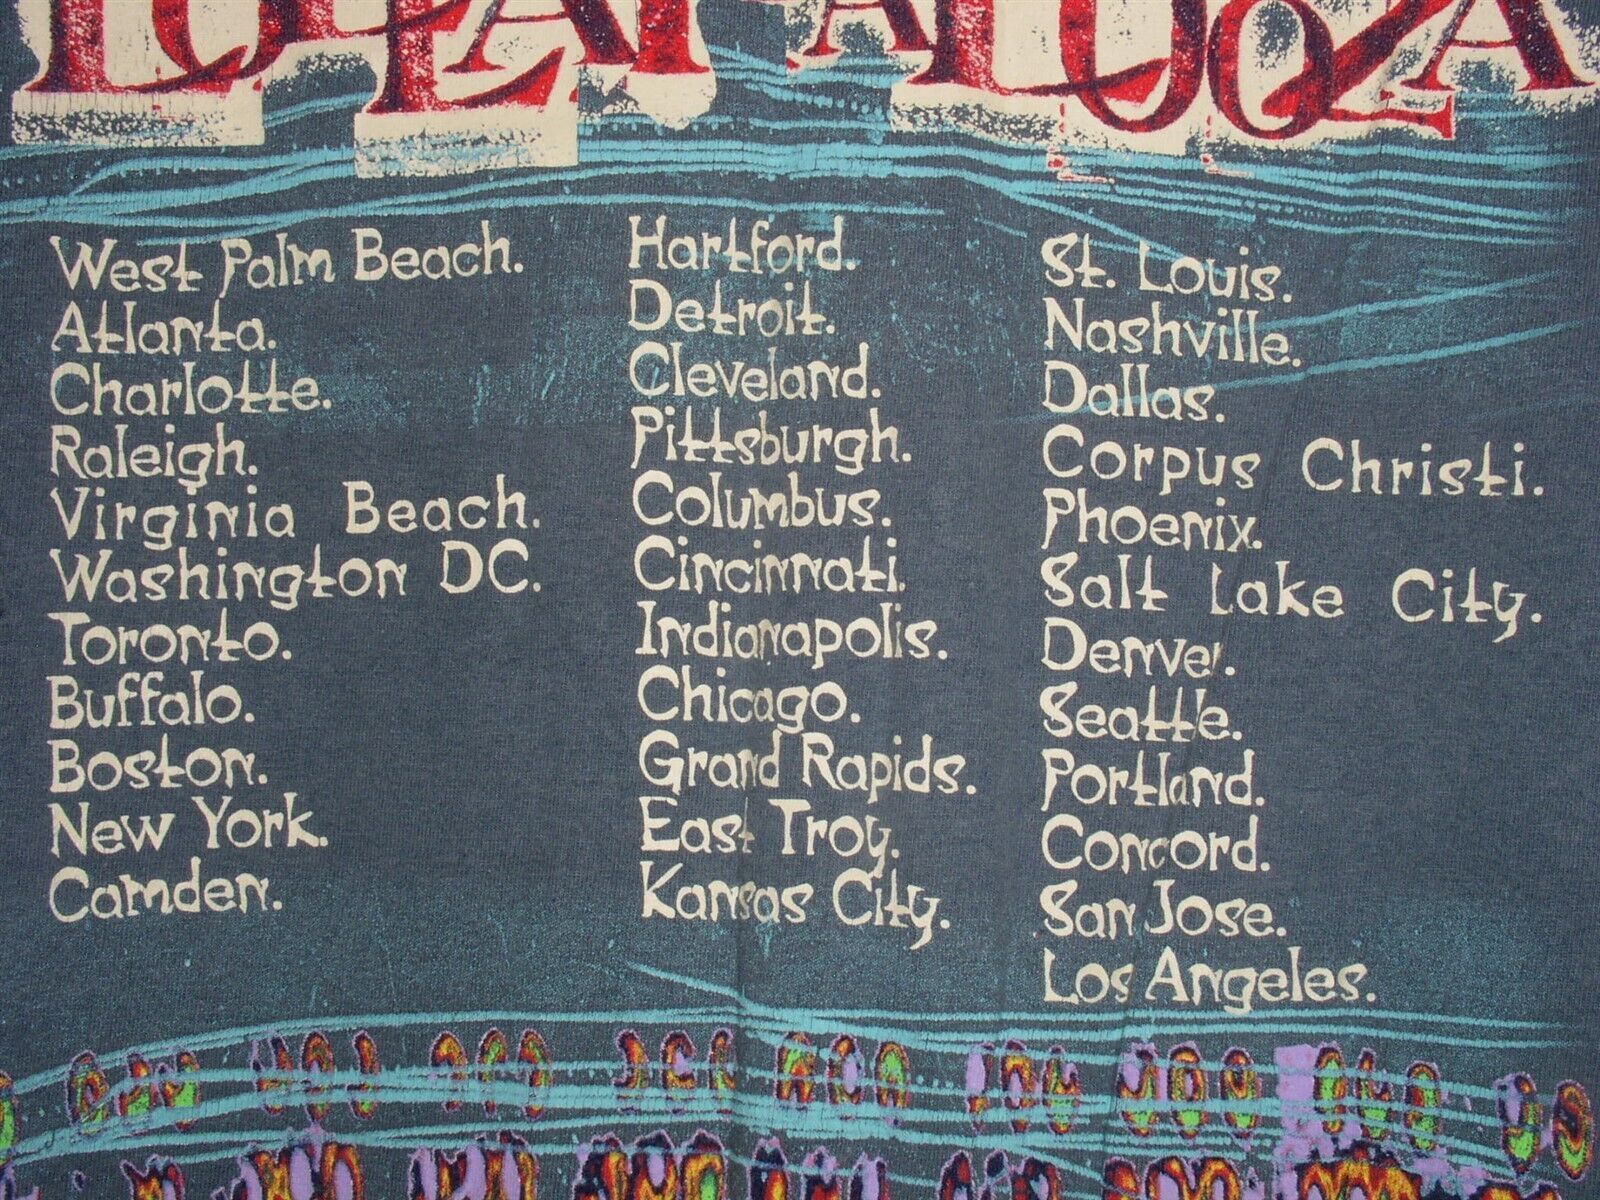 LOLLAPALOOZA
West Palm Beach.
Atlanta.
Charlotte.
Raleigh.
Virginia Beach.
Washington DC.
Toronto.
Buffalo.
Boston.
New York.
Camden.
Hartford.
Detroit.
Cleveland.
Pittsburgh.
Columbus.
Cincinnati.
Indianapolis.
Chicago.
Grand Rapids.
East Troy.
Kansas City.
St. Louis.
Nashville.
Dallas.
Corpus Christi.
Phoenix.
Salt Lake City.
Denver.
Seattle.
Portland.
Concord.
San Jose.
Los Angeles.